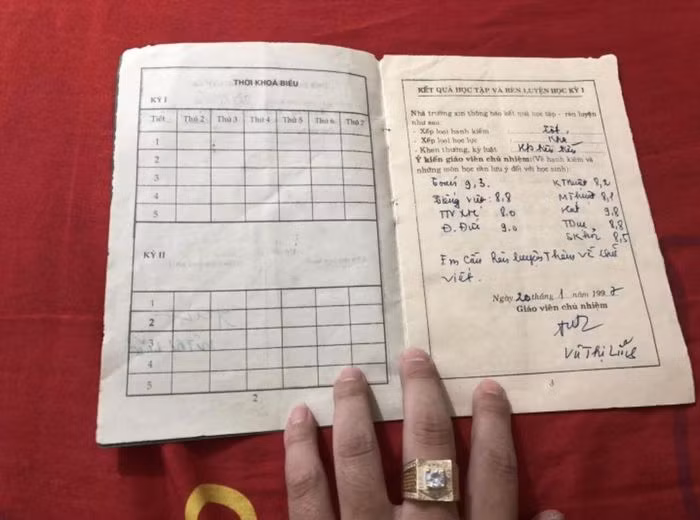 THỜI KHOÁ BIỂU
KỲ I
Tiết Thứ 2 Thứ 3 Thứ 4 Thứ 5 Thứ 6 Thứ 7
1
2
3
4
5
KỲ II
1
2
3
4
5
2
KẾT QUẢ HỌC TẬP VÀ RÈN LUYỆN HỌC KỲ I
Nhà trường xin thông báo kết quả học tập - rèn luyện
như sau:
- Xếp loại hạnh kiểm tốt.
- Xếp loại học lực Khá
- Khen thưởng, kỷ luật
Ý kiến giáo viên chủ nhiệm: (Về hạnh kiểm và
những môn học cần lưu ý đối với học sinh):
Toán 9,3. K Thuật 8,2
Tiếng việt: 8,8 M Thuật
TN XH 8.0 Hát 9.8
Đ. Đức 9.0 TDục 8,8
SKhỏe 8,5
Em cần Rèn luyện Thêm về chữ
viết.
Ngày 20 tháng 1 năm 1997
Giáo viên chủ nhiệm
Vũ Thị
3